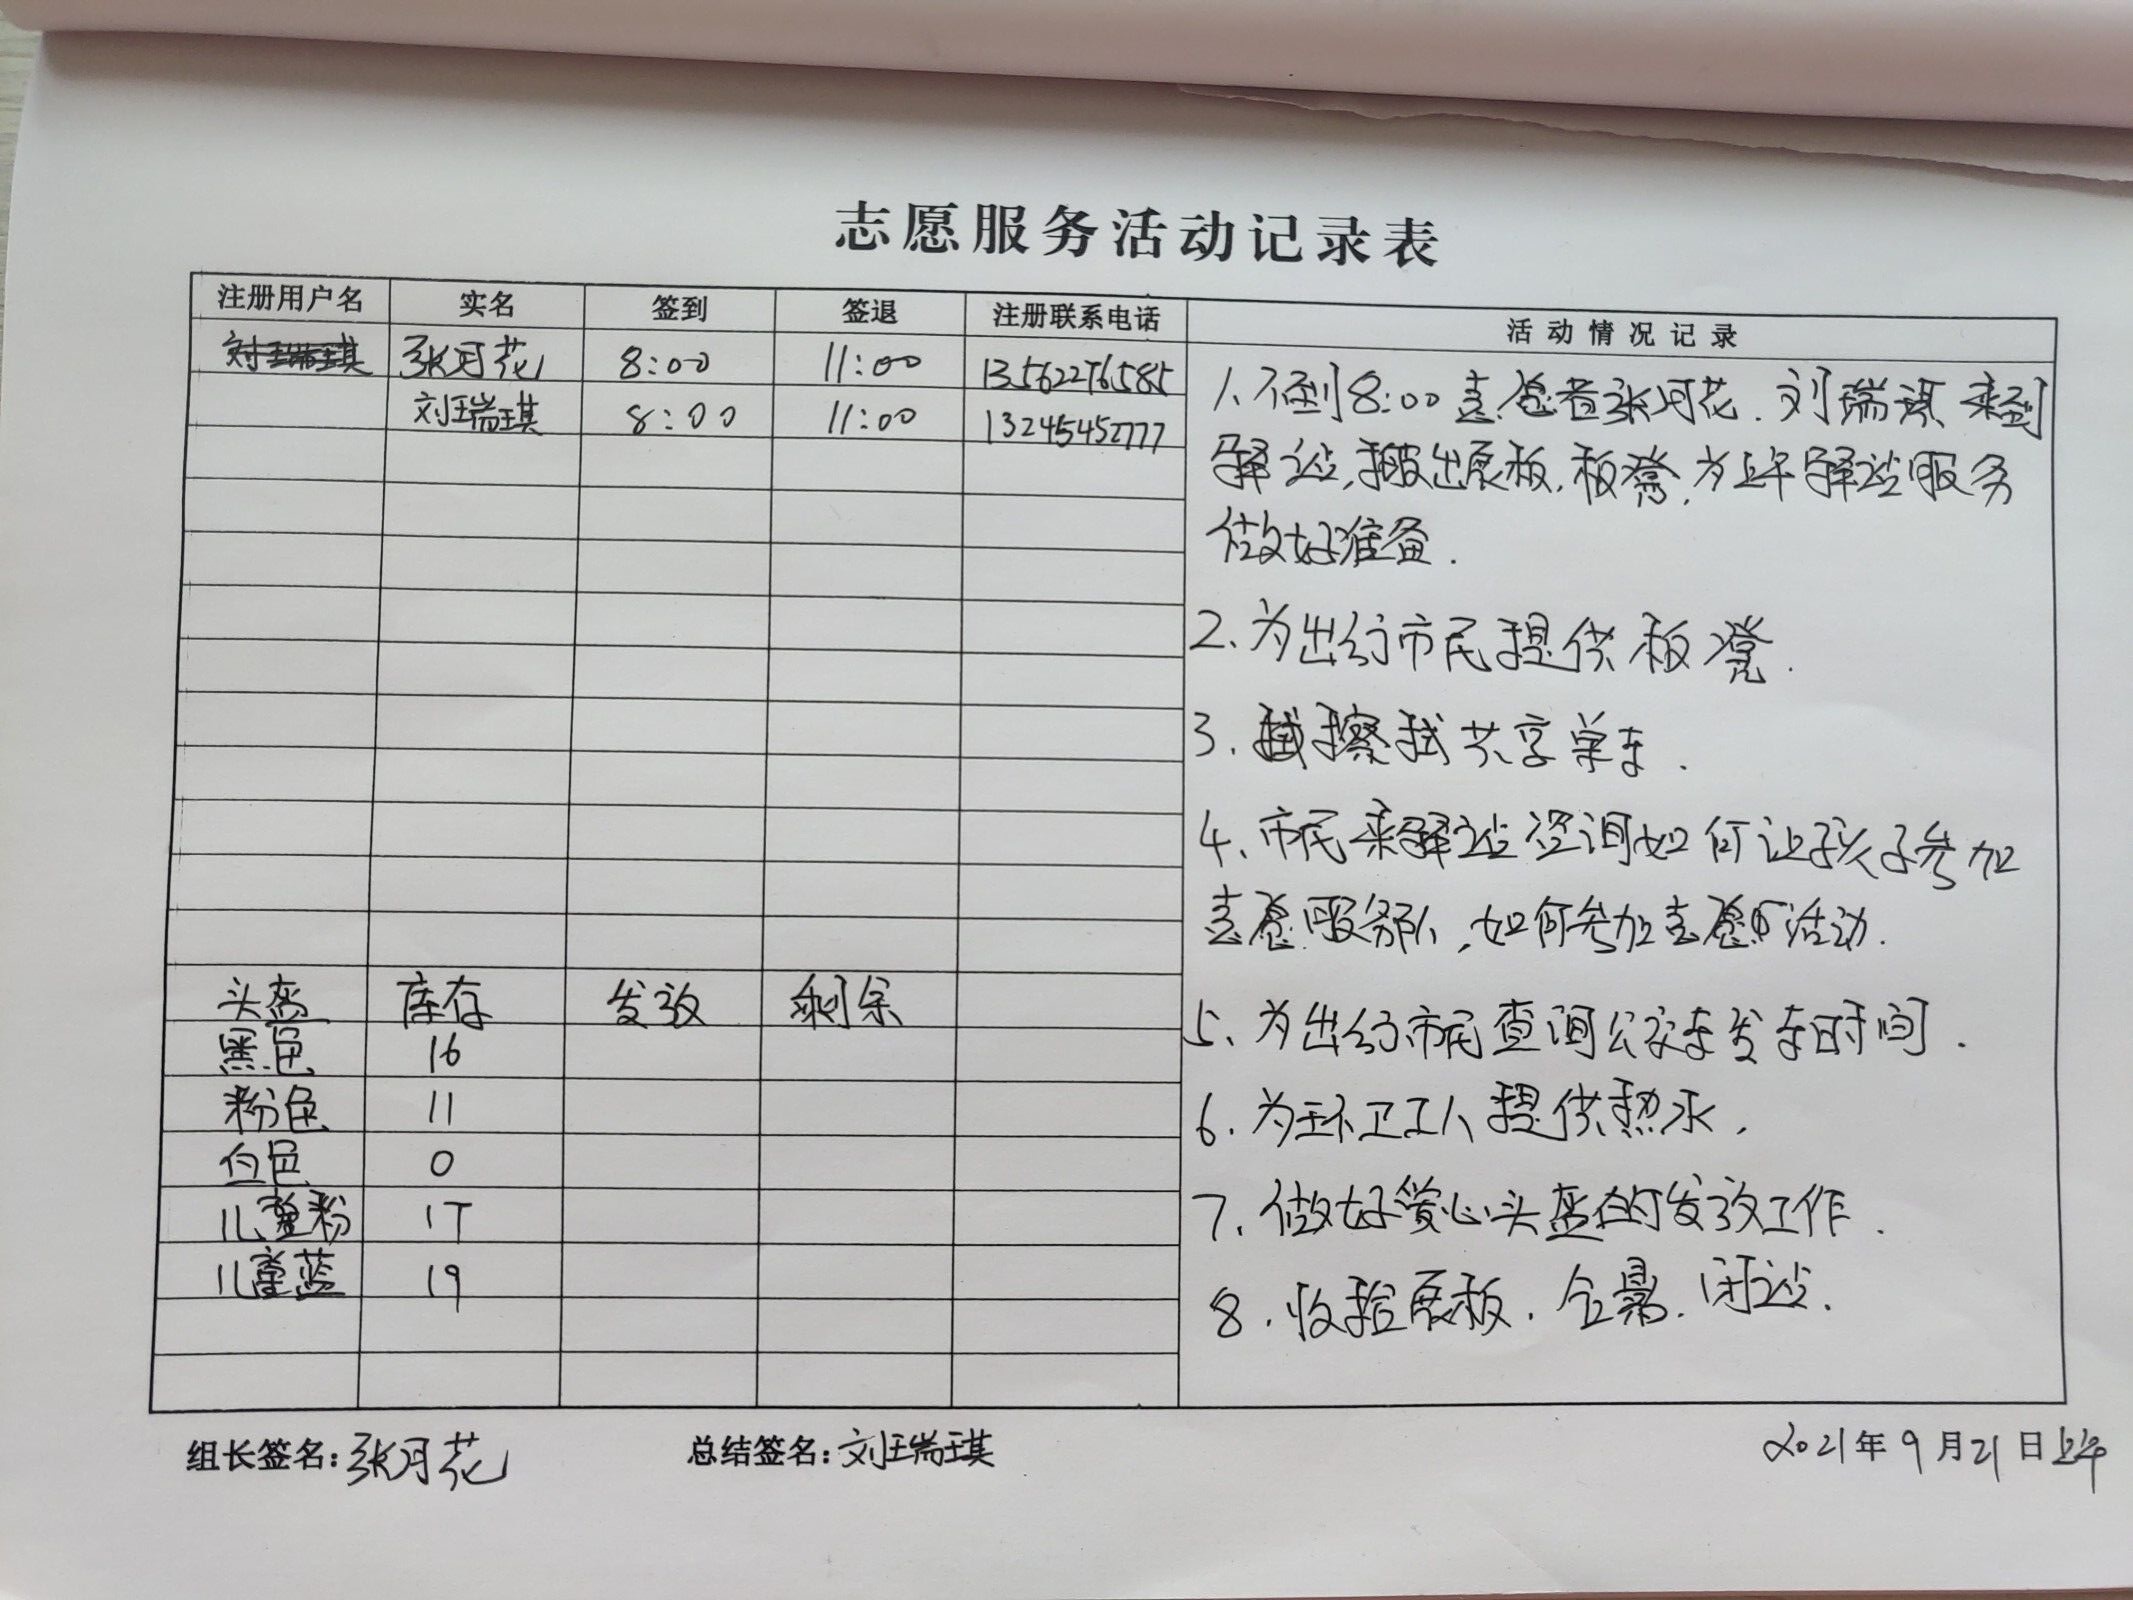 志愿服务活动记录表
注册用户名 实名 签到 签退 注册联系电话 活动情况记录
张河花 8:00 11:00 13562276585
刘瑞琪 8:00 11:00 13245452777
1、不到8:00志愿者张河花.刘瑞琪来到
驿站,搬出展板,板凳,为上午驿站服务
做好准备.
2、为出行市民提供板凳.
3.擦拭共享单车.
4、市民来驿站咨询如何让孩子参加
志愿服务队,如何参加志愿活动.
5、为出行市民查询公交车发车时间.
6.为环卫工人提供热水,
7、做好爱心头盔的发放工作.
8.收拾展板.台幕.闭站.
头盔 库存 发放 剩余
黑色 16
粉色 11
白色 0
儿童粉 17
儿童蓝 19
组长签名:张河花 总结签名:刘瑞琪 2021年9月21日上午